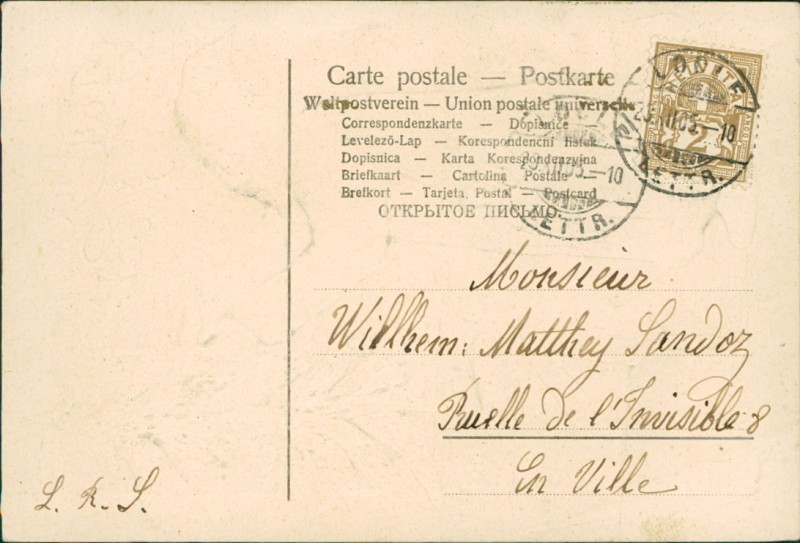 Carte postale — Postkarte
Weltpostverein — Union postale universelle
Correspondenzkarte — Dopisnice
Levelező-Lap — Korespondenční lístek
Dopisnica — Karta Korespondenzyjna
Briefkaart — Cartolina Postale
Brefkort — Tarjeta Postal — Postcard
ОТКРЫТОЕ ПИСЬМО.
LETTR.
Monsieur
Willhem: Matthey Sandoz
Ruelle de l'Invisible 8
En Ville
L. R. S.